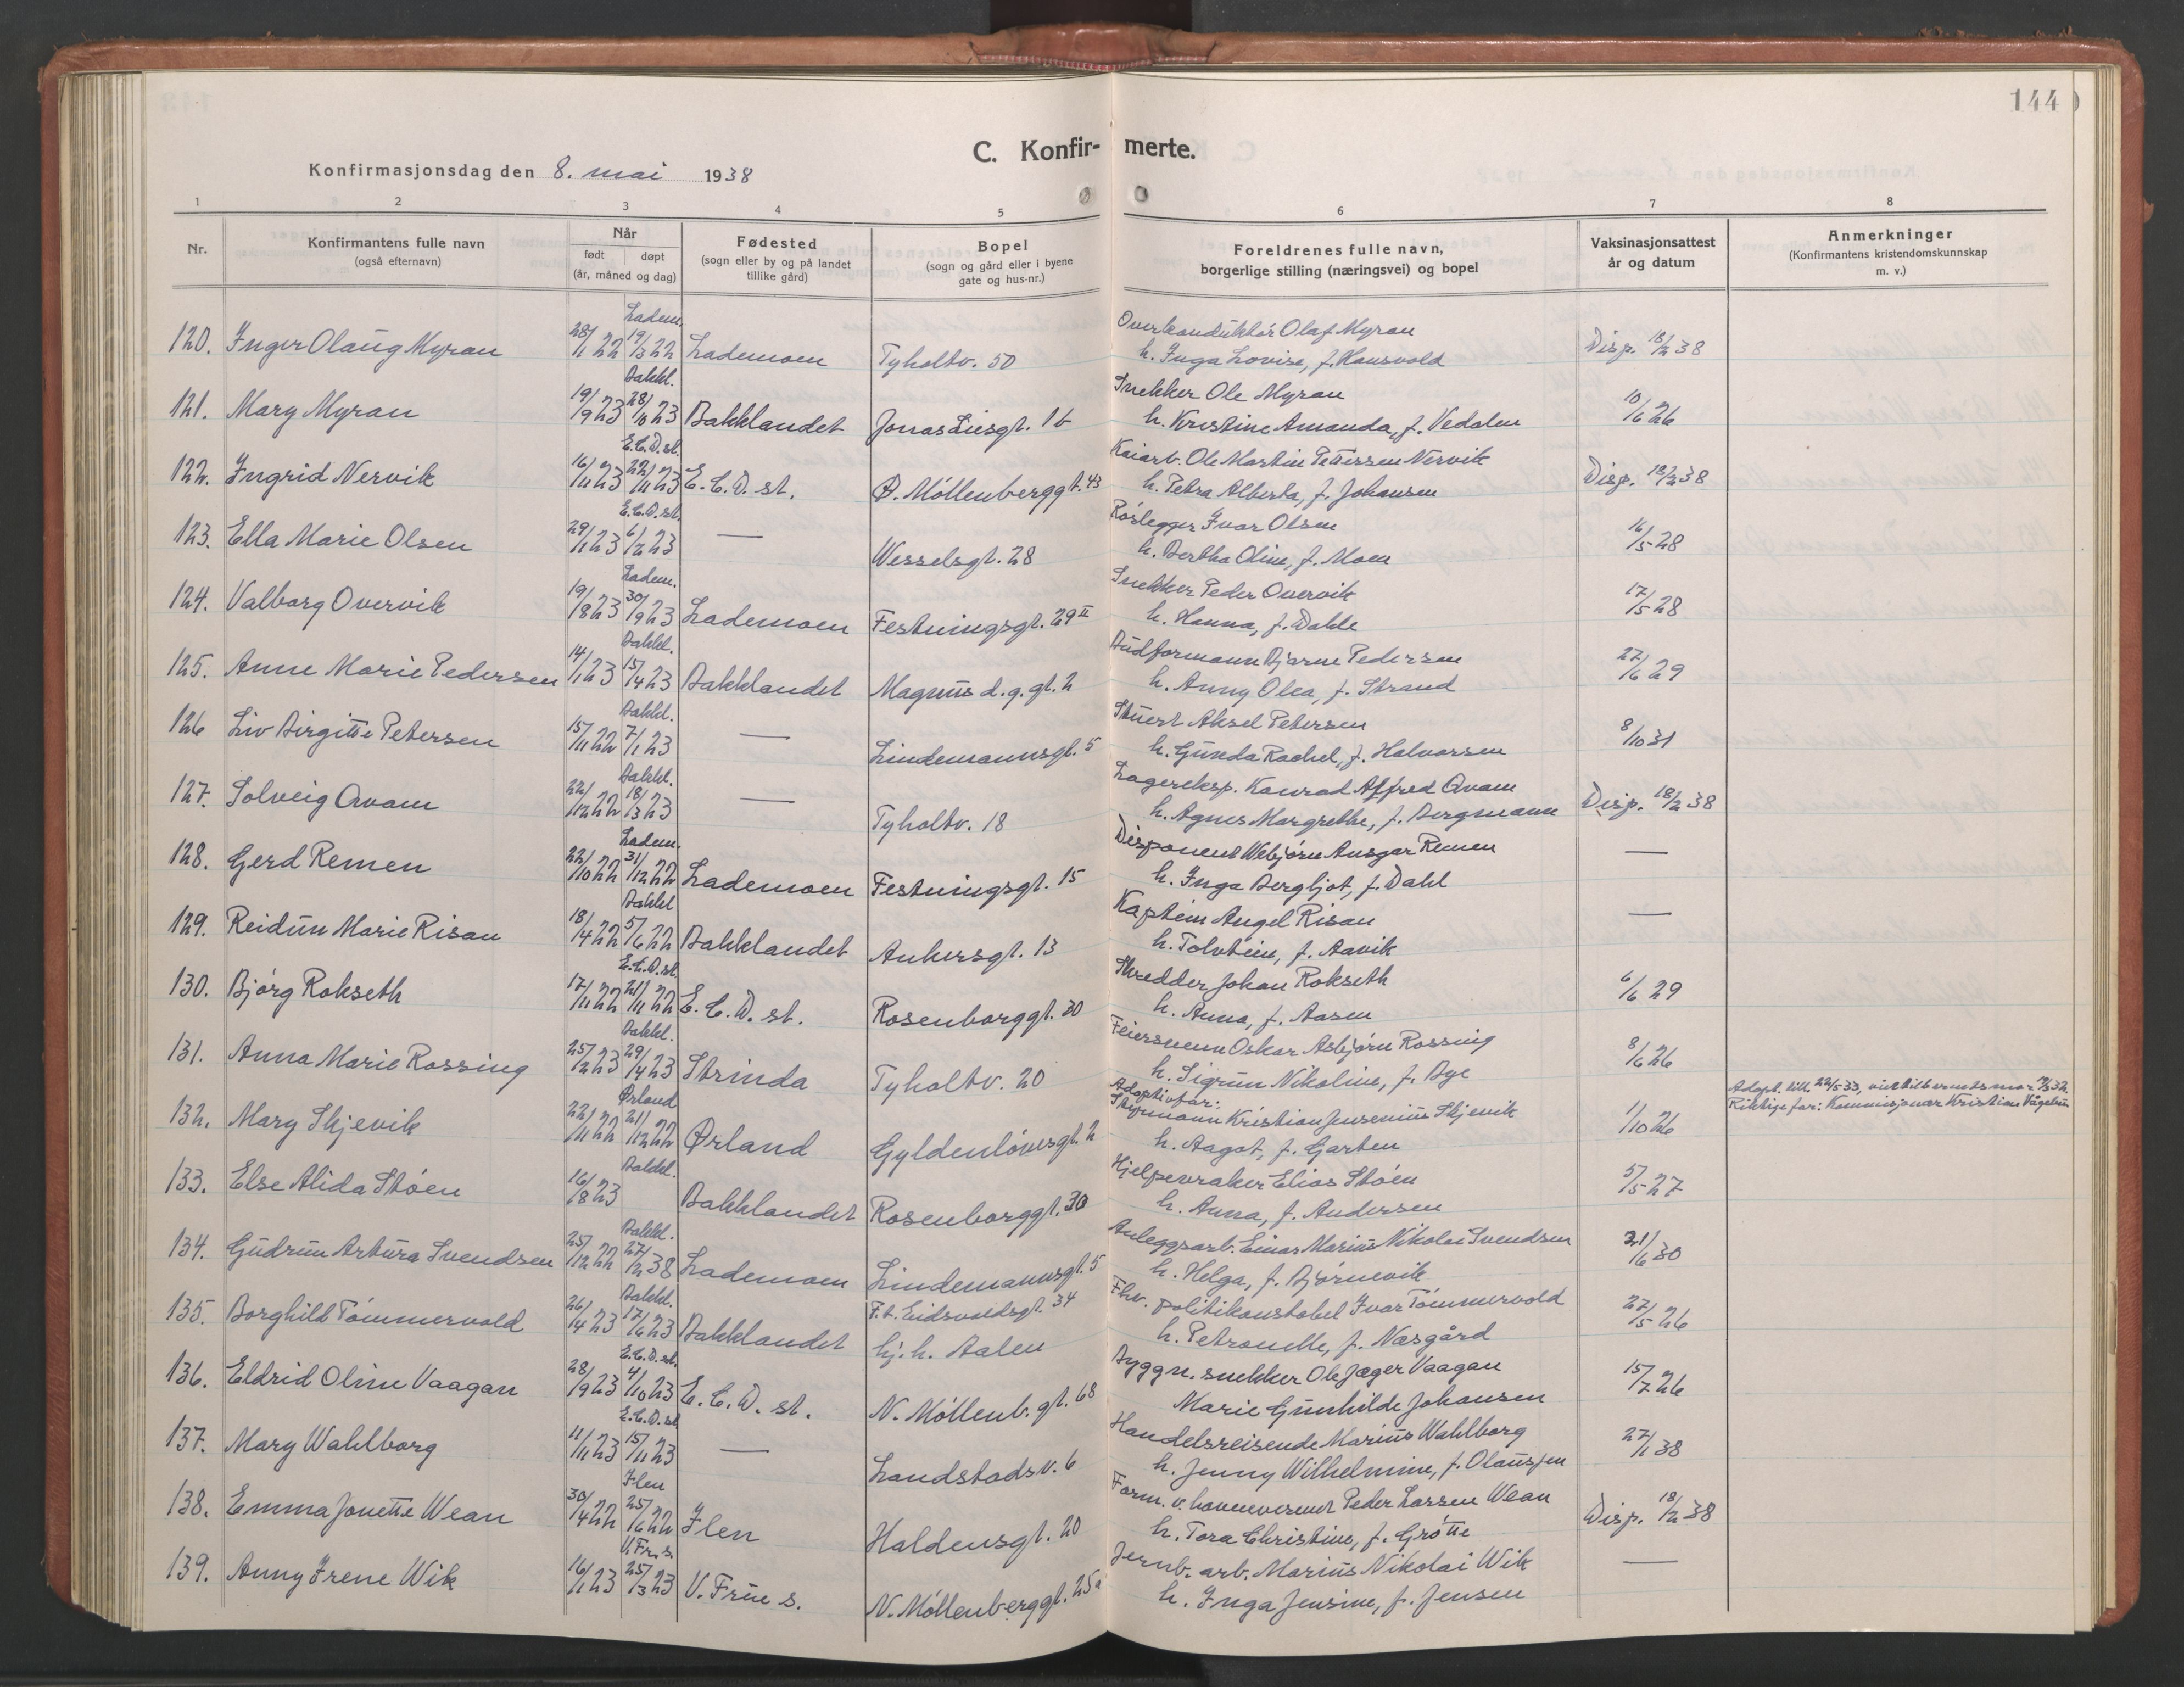 144
C. Konfir- merte.
Konfirmasjonsdag den 8. mai 1938
1 2 3 4 5 6 7 8
Nr.
Konfirmantens fulle navn
(også efternavn)
Når
født døpt
(år, måned og dag)
Fødested
(sogn eller by og på landet
tillike gård)
Bopel
(sogn og gård eller i byene
gate og hus-nr.)
Foreldrenes fulle navn,
borgerlige stilling (næringsvei) og bopel
Vaksinasjonsattest
år og datum
Anmerkninger
(Konfirmantens kristendomskunnskap
m. v.)
Ladem. Overkonduktör Olaf Myran
120. Inger Olaug Myran 28/1 22 19/3 22 Lademoen Tyholtv. 50 h. Inga Lovise, f. Hansvold Disp. 18/2 38
Bakkl. Snekker Ole Myran
121. Mary Myran 19/9 23 28/10 23 Bakklandet Jonas Liesgt. 1b h. Kristine Amanda, f. Vedalen 10/6 26
E.C.D.st. Kaiarb. Ole Martin Pettersen Nervik
122. Ingrid Nervik 16/11 23 22/11 23 E.C.D. st. Ø. Möllenberggt. 43 h. Petra Alberta, f. Johansen Disp. 18/2 38
E.C.D.st. Rörlegger Ivar Olsen
123. Ella Marie Olsen 29/1 23 6/2 23 — Wesselsgt. 28 h. Bertha Oline, f. Moen 16/5 28
Ladem. Snekker Peder Overvik
124. Valborg Overvik 19/8 23 30/9 23 Lademoen Festningsgt. 29 II h. Hanna, f. Dahle 17/5 28
Bakkl. Budformann Bjarne Pedersen
125. Anne Marie Pedersen 14/1 23 15/4 23 Bakklandet Magnus d. g. gt. 2 h. Anny Olea, f. Strand 27/6 29
Bakkl. Stuert Aksel Petersen
126 Liv Birgitte Petersen 15/11 22 7/1 23 — Lindemannsgt. 5 h. Gunda Rachel, f. Halvorsen 8/10 31
Bakkl. Lagereksp. Konrad Alfred Qvam
127. Solveig Qvam 22/12 22 18/3 23 — Tyholtv. 18 h. Agnes Margrethe, f. Bergmann Disp. 18/2 38
Ladem. Disponent Webjörn Ansgar Remen
128. Gerd Remen 22/10 22 31/12 22 Lademoen Festningsgt. 15 h. Inga Bergljot, f. Dahl —
Bakkl Kaptein Angel Risan
129. Reidun Marie Risan 18/4 22 5/6 22 Bakklandet Ankersgt. 13 h. f. Aavik —
E.C.D.st. Skredder Johan Rokseth
130. Björg Rokseth 17/11 22 21/11 22 E.C.D. st. Rosenborggt. 30 h. Anna, f. Aasen 6/6 29
Bakkl. Feiersvenn Oskar Asbjörn Rossing
131. Anna Marie Rossing 25/2 23 29/4 23 Strinda Tyholtv. 20 h. Sigrun Nikoline, f. Bye 8/6 26
Ørland Adoptivfar: Styrmann Kristian Jensenius Skjevik Adopt. bill. 22/5 33,
132. Mary Skjevik 22/11 22 21/12 22 Ørland Gyldenlövesgt. 2 h. Aagot, f. Garten 1/10 26 Riktige far: Kommisjonær Kristian
Bakkl. Hjelpevraker Elias Stöen
133. Else Alida Stöen 16/8 23 Bakklandet Rosenborggt. 30 h. Anna, f. Andersen 5/5 27
Bakkl. Anleggsarb. Einar Marius Nikolai Svendsen
134. Gudrun Artura Svendsen 25/12 22 27/2 38 Lademoen Lindemannsgt. 5 h. Helga, f. Björnevik 21/6 30
Bakkl. F.t. Eidsvoldsgt. 34 Fhv. politikonstabel Ivar Tömmervold
135. Borghild Tömmervold 26/4 23 17/6 23 Bakklandet hj. h. Aalen h. Petronelle, f. Næsgård 27/5 26
E.C.D.st. Byggn. snekker Ole Jæger Vaagan
136. Eldrid Oline Vaagan 28/9 23 4/10 23 E.C.D. st. N. Möllenb. gt. 68 Marie Gunhilde Johansen 15/7 26
E.C.D.st Handelsreisende Marius Wahlborg
137. Mary Wahlborg 11/11 23 15/11 23 — Landstads v. 6 h. Jenny Wilhelmine, f. Olaussen 27/1 38
Ilen Form. v. havnevesenet Peder Larsen Wean
138. Emma Jonette Wean 30/4 22 25/6 22 Ilen Haldensgt. 20 h. Tora Christine, f. Grötte Disp. 18/2 38
V.Fr.s. Jernb. arb. Marius Nikolai Wik
139. Anny Irene Wik 16/1 23 25/3 23 V. Frue s. N. Möllenberggt. 25a h. Inga Jensine, f. Jensen —